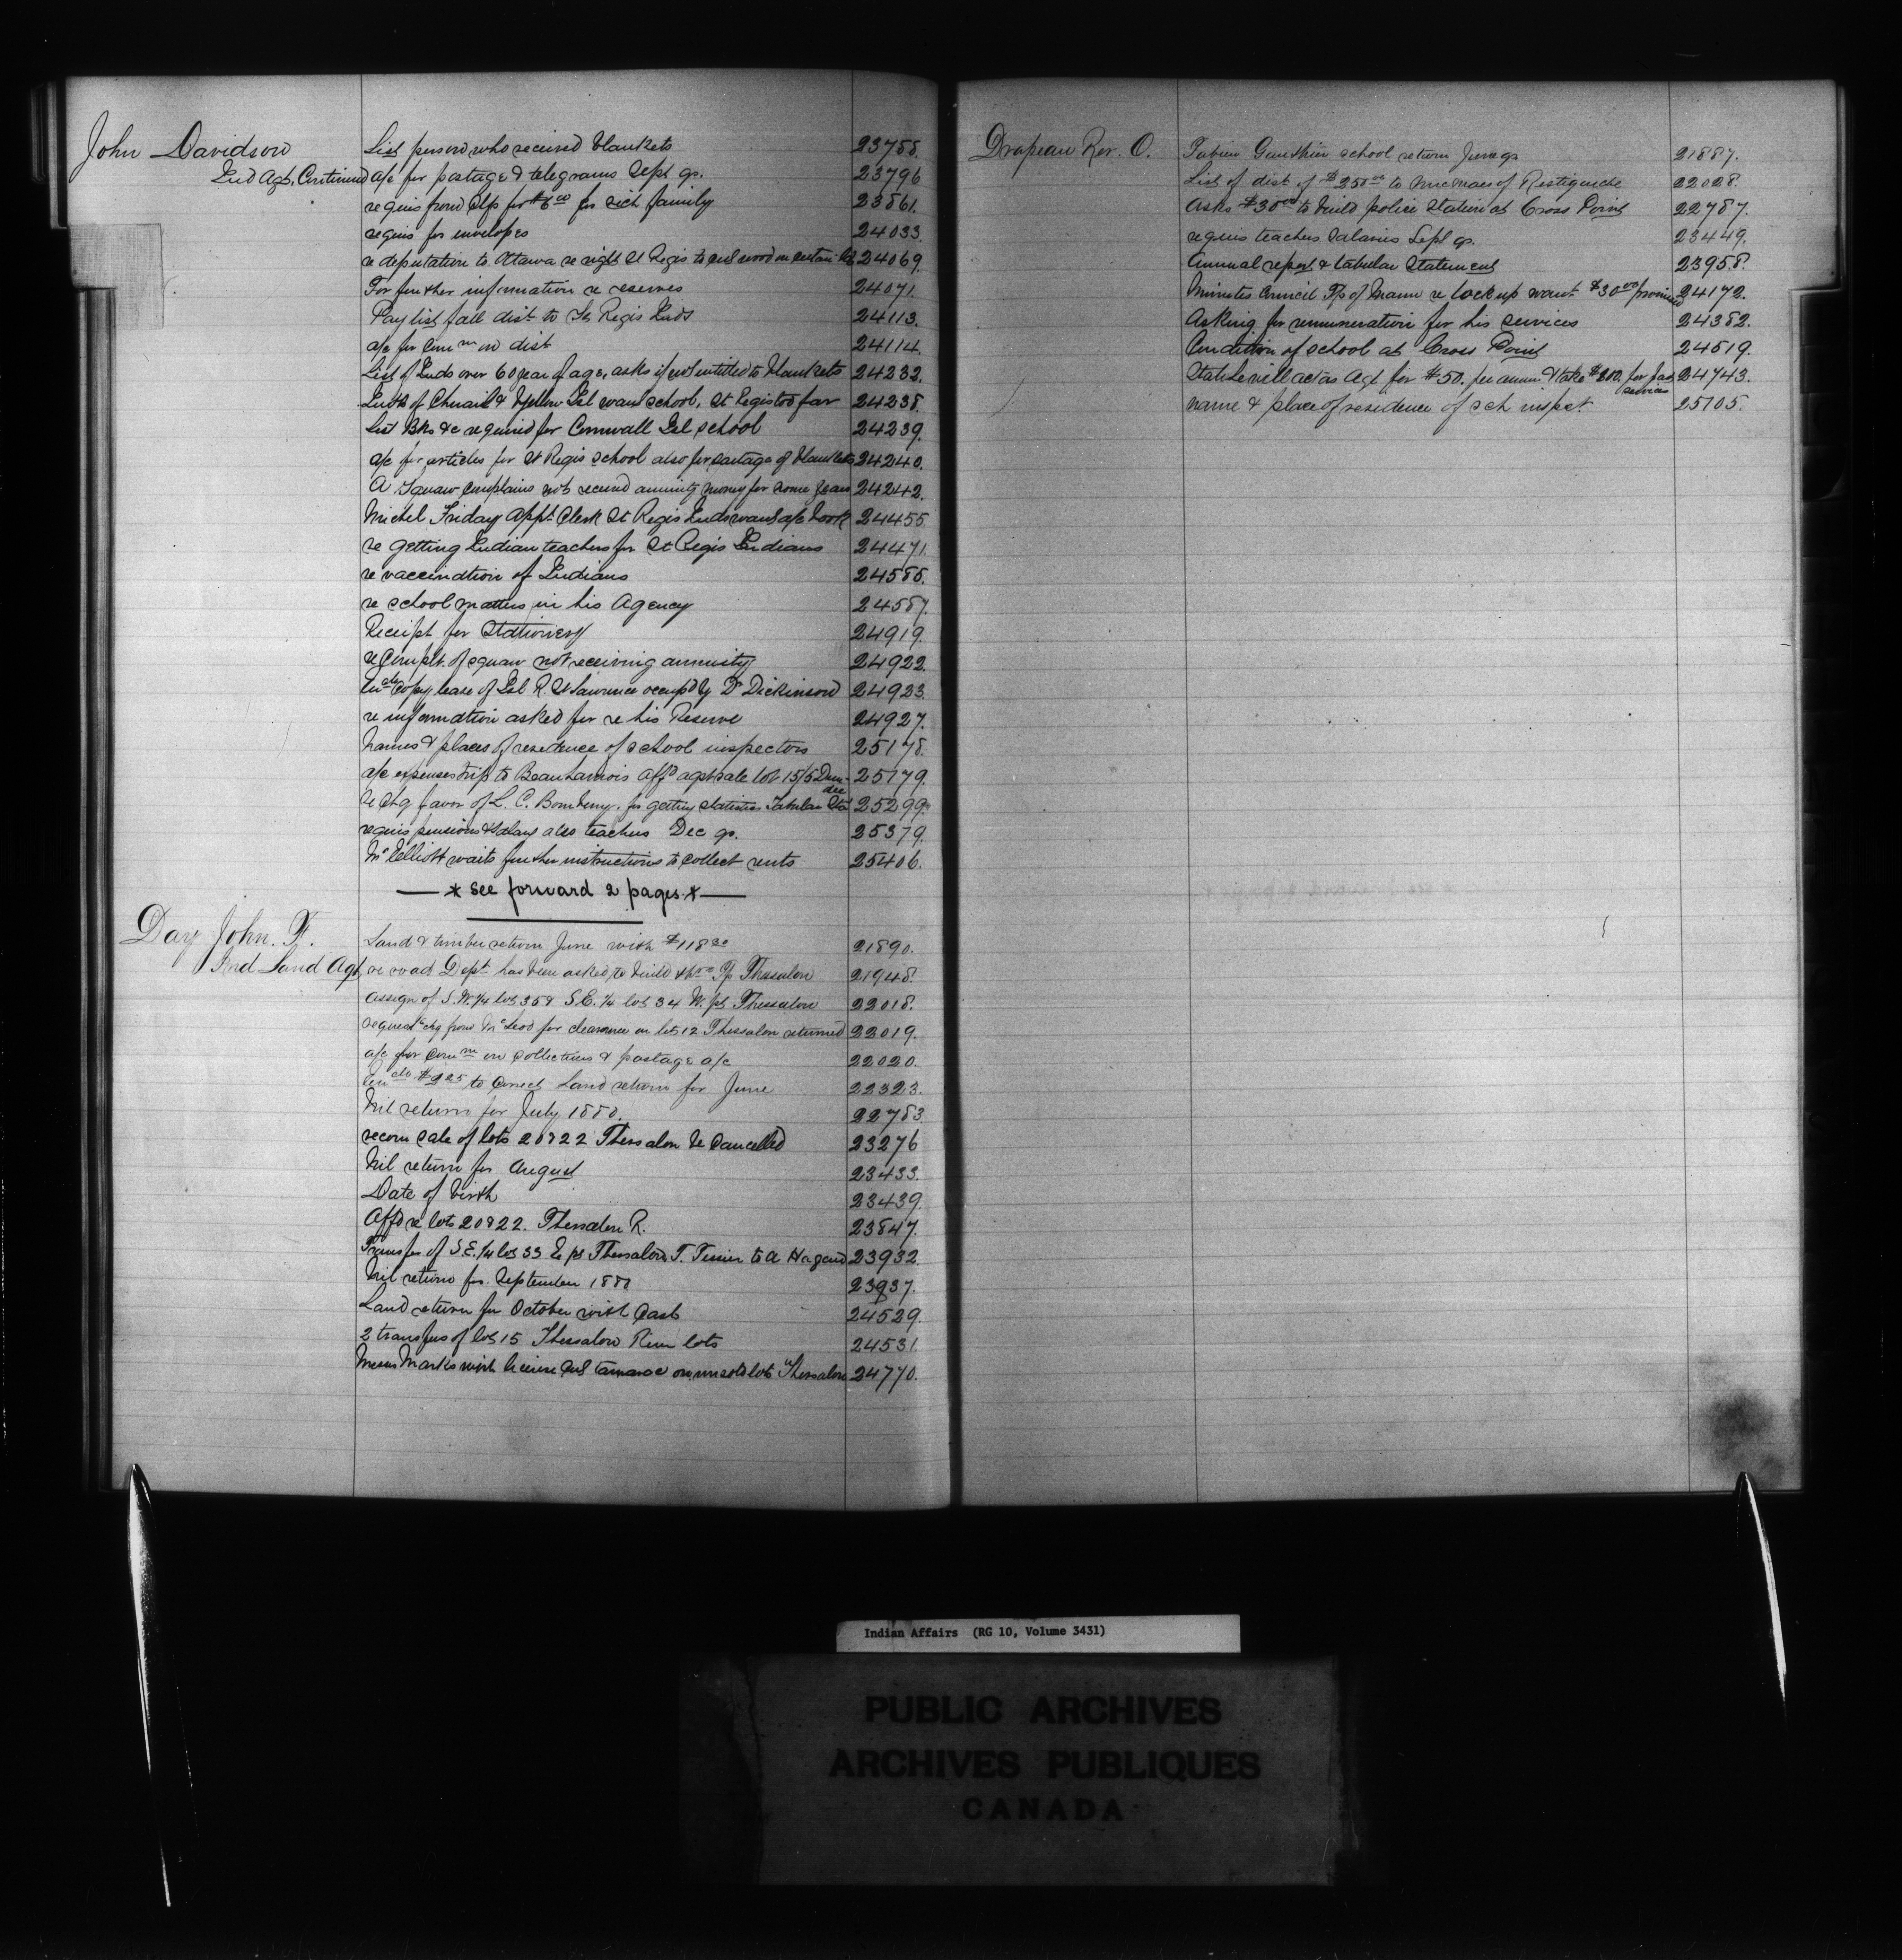 John Davidson
Ind Agt. Continued
List person who received blankets 23788.
a/c for postage & telegrams Sept qr. 23796
requis from Clp for $6 00 for sick family 23861.
requis for envelopes 24033.
re deputation to Ottawa re right St Regis to cut wood on certain 24069.
For further information re reserves 24071.
Pay list fall dist to St Regis Inds 24113.
a/c for Com mn on dist 24114.
List of Inds over 60 year of age, asks if not intitled to blankets 24232.
Inds of Chenail & Yellow Isl want school, St Regis too far 24238.
List Bks &c required for Cornwall Isl school 24239.
a/c for articles for St Regis school also for cartage of blankets 24240.
A squaw complains not received annuity money for some years 24242.
Michel Friday appt Clerk St Regis Inds want a/c book 24455.
re getting Indian teachers for St Regis Indians 24471.
re vaccination of Indians 24586.
re school matters in his Agency 24587.
Receipt for Stationery 24919.
re Complt. of squaw not receiving annuity 24922.
copy lease of Isl R. St Lawrence occupd by Dr Dickinson 24923.
re information asked for re his Reserve 24927.
Names & places of residence of school inspectors 25178.
a/c expenses trip to Beauharnois affd agst sale lot 15/5 Dun-
dee 25179.
re Chq favor of L. C. Bomberry. for getting statistics Tabular Stat 25299.
requis pensions & salary also teachers Dec qr. 25379.
Mr Elliott waits further instructions to collect rents 25406.
— * see forward 2 pages. * —
Day John. F.
Ind Land Agt
Land & timber return June with $118 30 21890.
re road Dept has been asked to build thro Tp Thessalon 21948.
assign of S.W. 1/4 lot 35 & S.E. 1/4 lot 34 W. pt Thessalon 22018.
request chq from McLeod for clearance on lot 12 Thessalon returned 22019.
a/c for Com mn on collections & postage a/c 22020.
to correct Land return for June 22323.
Nil return for July 1880. 22783
recom sale of lots 20 & 22 Thessalon be Cancelled 23276
Nil return for August 23433.
Date of birth 23439.
Affd re lots 20 & 22. Thessalon R. 23847.
Transfer of S.E. 1/4 lot 33 E pt Thessalon, T. Tessier to A 23932.
Nil return for September 1880 23937.
Land return for October with Cash 24529.
2 transfers of lot 15 Thessalon River lots 24531.
Messrs Marks wish license cut tamarac on unsold lots Thessalon 24770.
Drapeau Rev. O.
Fabien Gauthier school return June qr 21887.
List of dist of $250 00 to Micmacs of Restigouche 22028.
Asks $30 00 to build police station at Cross Point 22787.
requis teachers salaries Sept qr. 23449.
Annual report & tabular Statement 23958.
Minutes Council Tp of Mann re lock up want $30 00 promised 24172.
Asking for remuneration for his services 24382.
Condition of school at Cross Point 24519.
States will act as Agt for $50. per annum & take for past
services 24743.
name & place of residence of sch inspect. 25105.
Indian Affairs (RG 10, Volume 3431)
PUBLIC ARCHIVES
ARCHIVES PUBLIQUES
CANADA